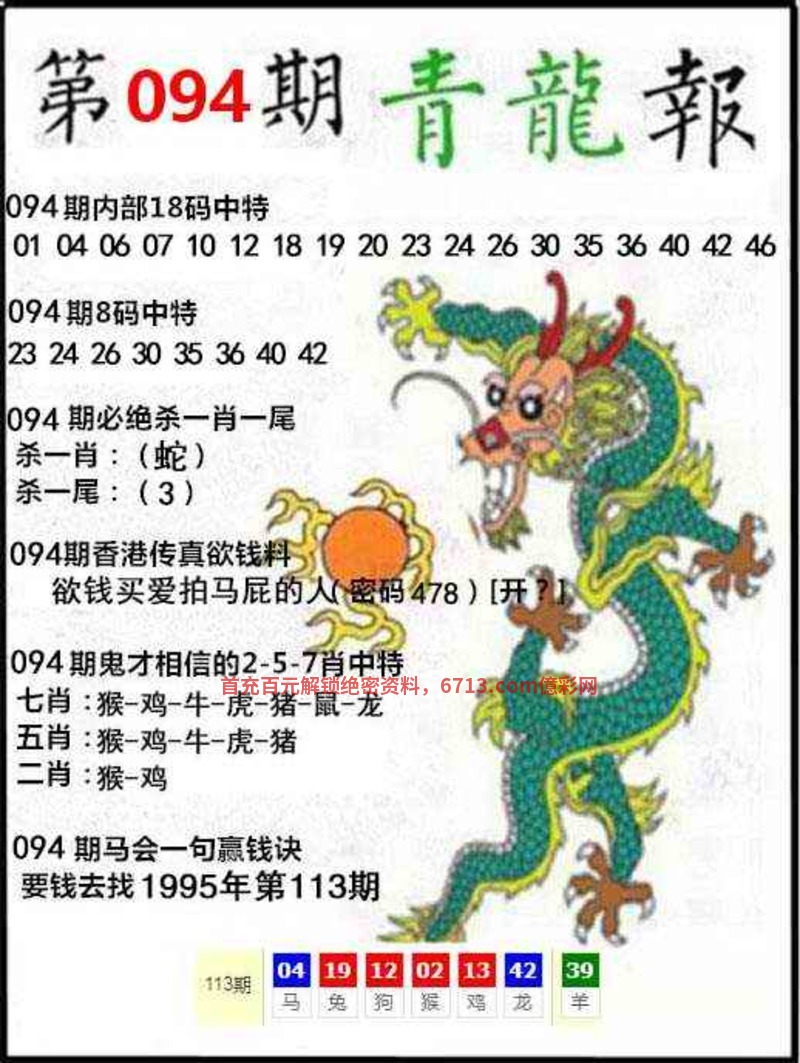 第094期 青龍報
094期内部18码中特
01 04 06 07 10 12 18 19 20 23 24 26 30 35 36 40 42 46
094期8码中特
23 24 26 30 35 36 40 42
094 期必绝杀一肖一尾
杀一肖：（蛇）
杀一尾：（3）
094期香港传真欲钱料
欲钱买爱拍马屁的人(密码478)[开？]
094期鬼才相信的2-5-7肖中特
首充百元解锁绝密资料，6713.com億彩网
七肖：猴-鸡-牛-虎-猪-鼠-龙
五肖：猴-鸡-牛-虎-猪
二肖：猴-鸡
094 期马会一句赢钱诀
要钱去找1995年第113期
113期 04 19 12 02 13 42 39
马 兔 狗 猴 鸡 龙 羊